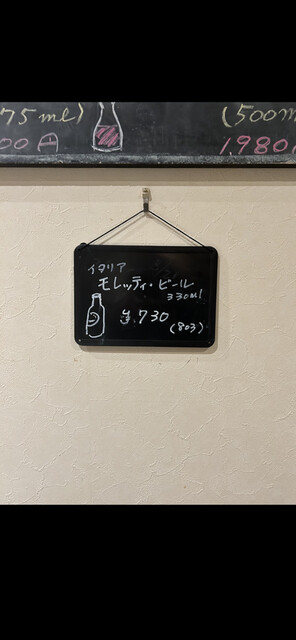 75ml)
(500m
00円
1,980
イタリア
モレッティ・ビール
330ml
¥.730
(803)